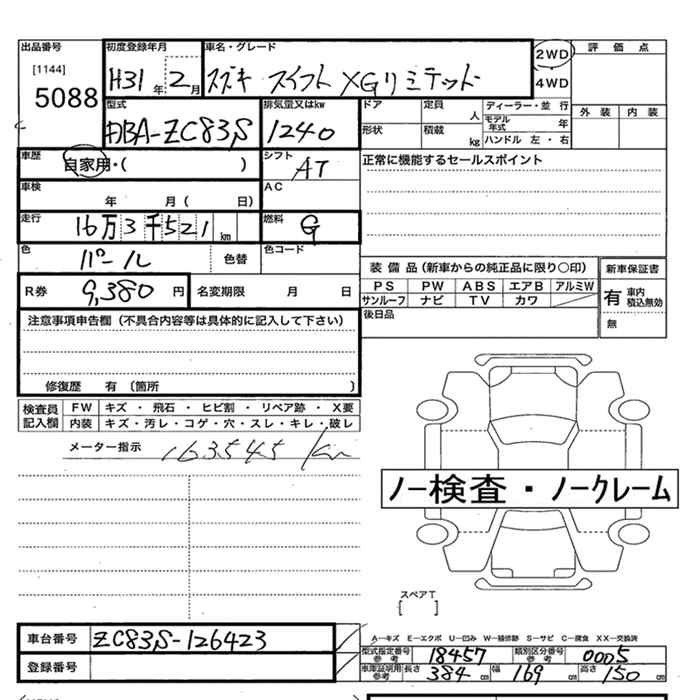 出品番号 初度登録年月 車名・グレード 2WD 評価点
[1144] 5088 H31年 2月 スズキ スイフト XGリミテッド 4WD
型式 排気量又はkw ドア 定員 人 ディーラー・並行 外装 内装
DBA-ZC83S 1240 形状 積載 kg モデル年式 年 ハンドル 左・右
車歴 自家用・( ) シフト AT 正常に機能するセールスポイント
車検 年 月( 日) AC
走行 16万3千521km 燃料 G
色 パール 色替 色コード
装備品(新車からの純正品に限り○印) 新車保証書
R券 9,380円 名変期限 月 日
PS PW ABS エアB アルミW 有 車内 積込無効
サンルーフ ナビ TV カワ
後日品 無
注意事項申告欄(不具合内容等は具体的に記入して下さい)
修復歴 有 〔箇所 〕
検査員記入欄 FW キズ・飛石・ヒビ割・リペア跡・X要
内装 キズ・汚レ・コゲ・穴・スレ・キレ・破レ
メーター指示 163545 km
ノー検査・ノークレーム
スペアT
[ ]
車台番号 ZC83S-126423
登録番号
A―キズ E―エクボ U―凹み W―補修跡 S―サビ C―腐食 XX―交換済
型式指定番号 参考 18457 類別区分番号 参考 0005
車庫証明用 参考 長さ 384 cm 幅 169 cm 高さ 150 cm